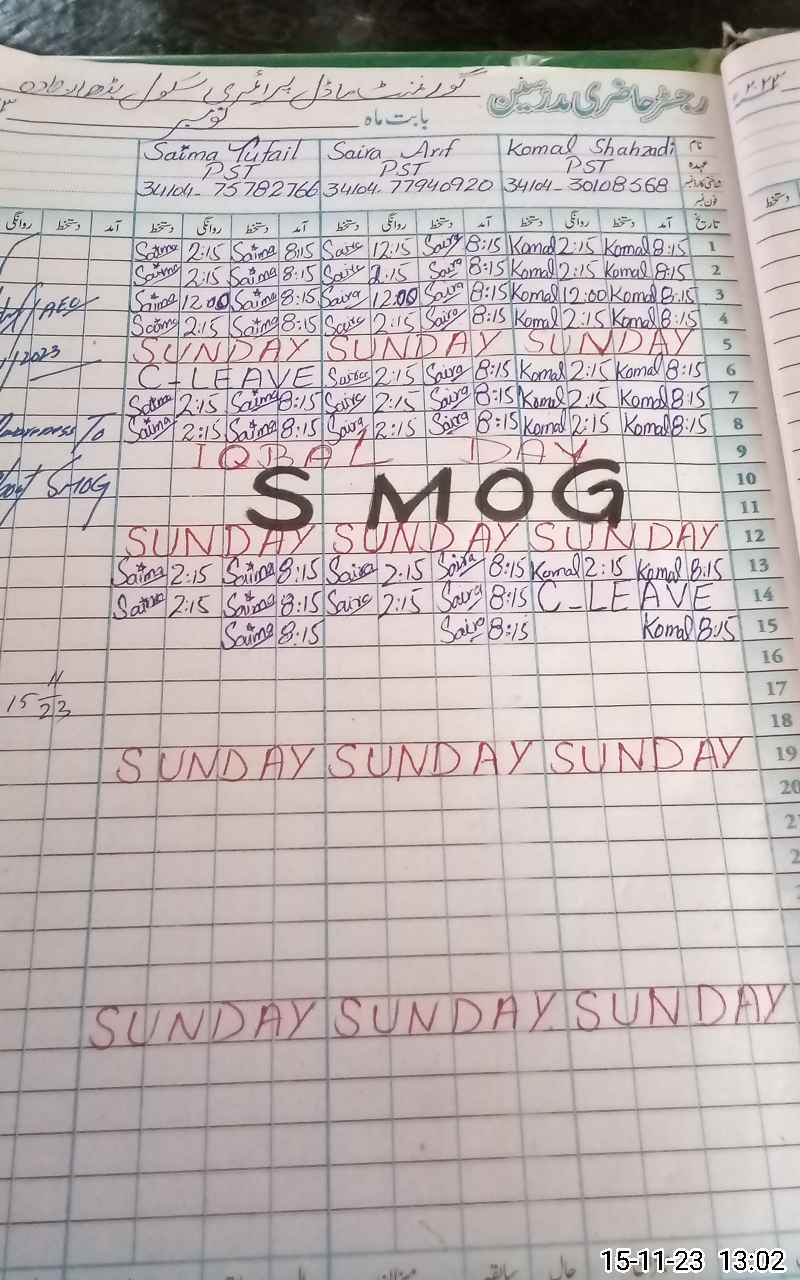 گورنمنٹ ماڈل پرائمری سکول
رجسٹر حاضری مدرسین
بابت ماہ نومبر
Saima Tufail Saira Arif Komal Shahzadi نام
PST PST PST عہدہ
34104-75782766 34104-77940920 34104-30108568
فون نمبر
روانگی دستخط آمد دستخط روانگی دستخط آمد دستخط روانگی دستخط آمد دستخط روانگی دستخط آمد تاریخ
Saima 2:15 Saima 8:15 Saira 12:15 Saira 8:15 Komal 2:15 Komal 8:15 1
Saima 2:15 Saima 8:15 Saira 2:15 Saira 8:15 Komal 2:15 Komal 8:15 2
AEO Saima 12:00 Saima 8:15 Saira 12:00 Saira 8:15 Komal 12:00 Komal 8:15 3
Saima 2:15 Saima 8:15 Saira 2:15 Saira 8:15 Komal 2:15 Komal 8:15 4
2023 SUNDAY SUNDAY SUNDAY 5
C-LEAVE Saira 2:15 Saira 8:15 Komal 2:15 Komal 8:15 6
Saima 2:15 Saima 8:15 Saira 2:15 Saira 8:15 Komal 2:15 Komal 8:15 7
To Saima 2:15 Saima 8:15 Saira 2:15 Saira 8:15 Komal 2:15 Komal 8:15 8
IQBAL DAY 9
SMOG 10
SMOG 11
SUNDAY SUNDAY SUNDAY 12
Saima 2:15 Saima 8:15 Saira 2:15 Saira 8:15 Komal 2:15 Komal 8:15 13
Saima 2:15 Saima 8:15 Saira 2:15 Saira 8:15 C-LEAVE 14
Saima 8:15 Saira 8:15 Komal 8:15 15
16
15 11 23 17
18
SUNDAY SUNDAY SUNDAY 19
20
SUNDAY SUNDAY SUNDAY
15-11-23 13:02